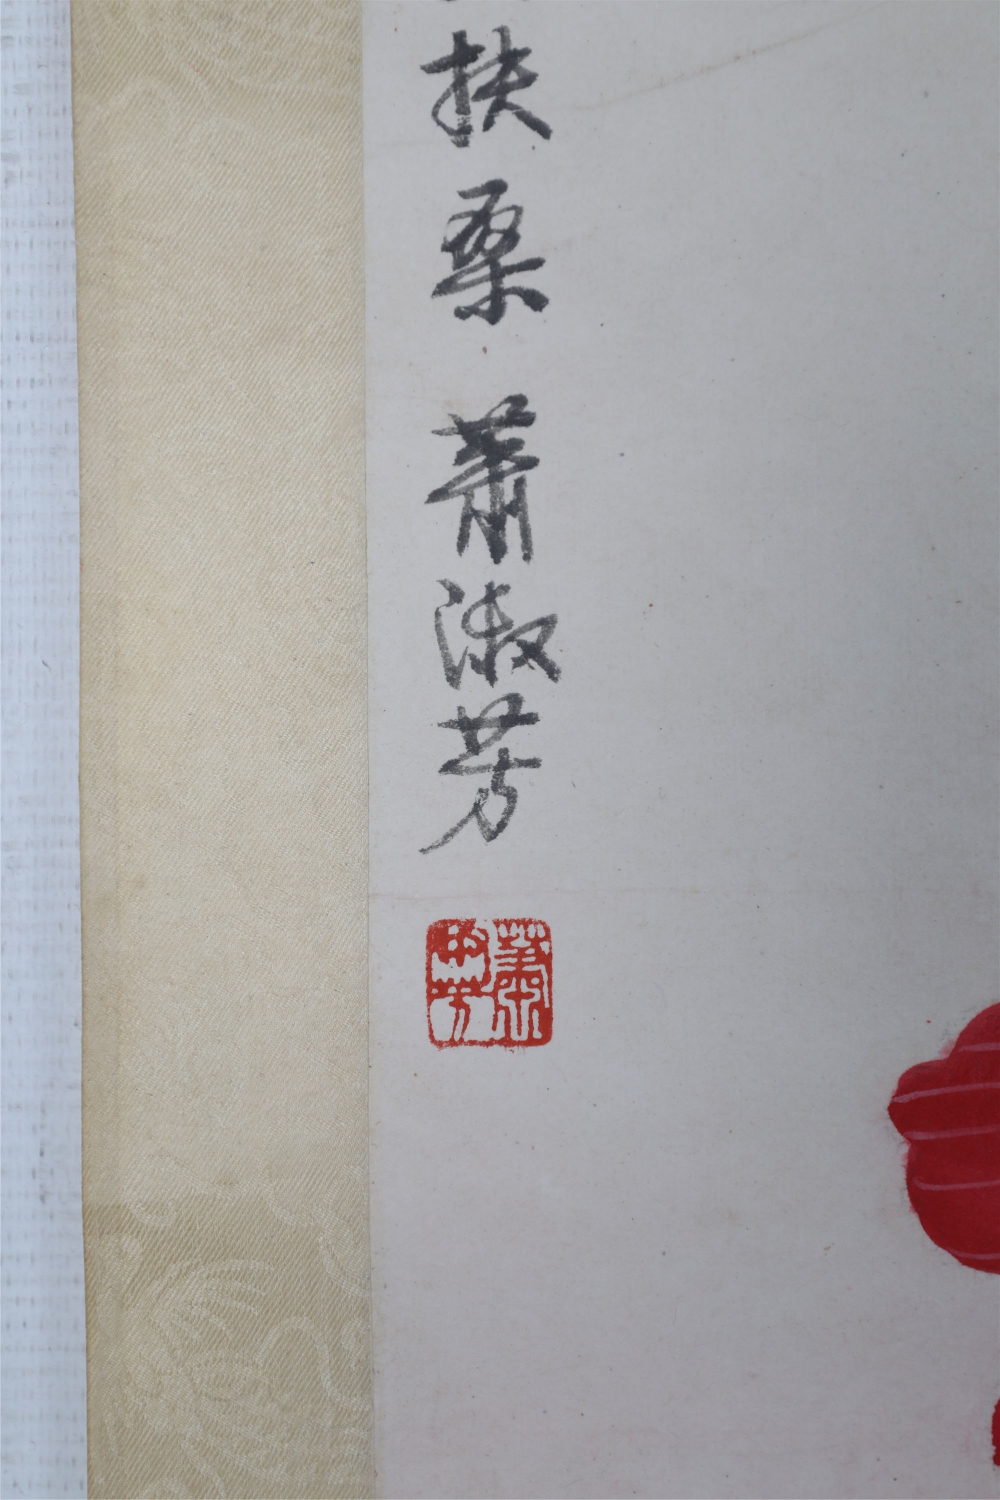 扶桑 萧淑芳
萧淑芳